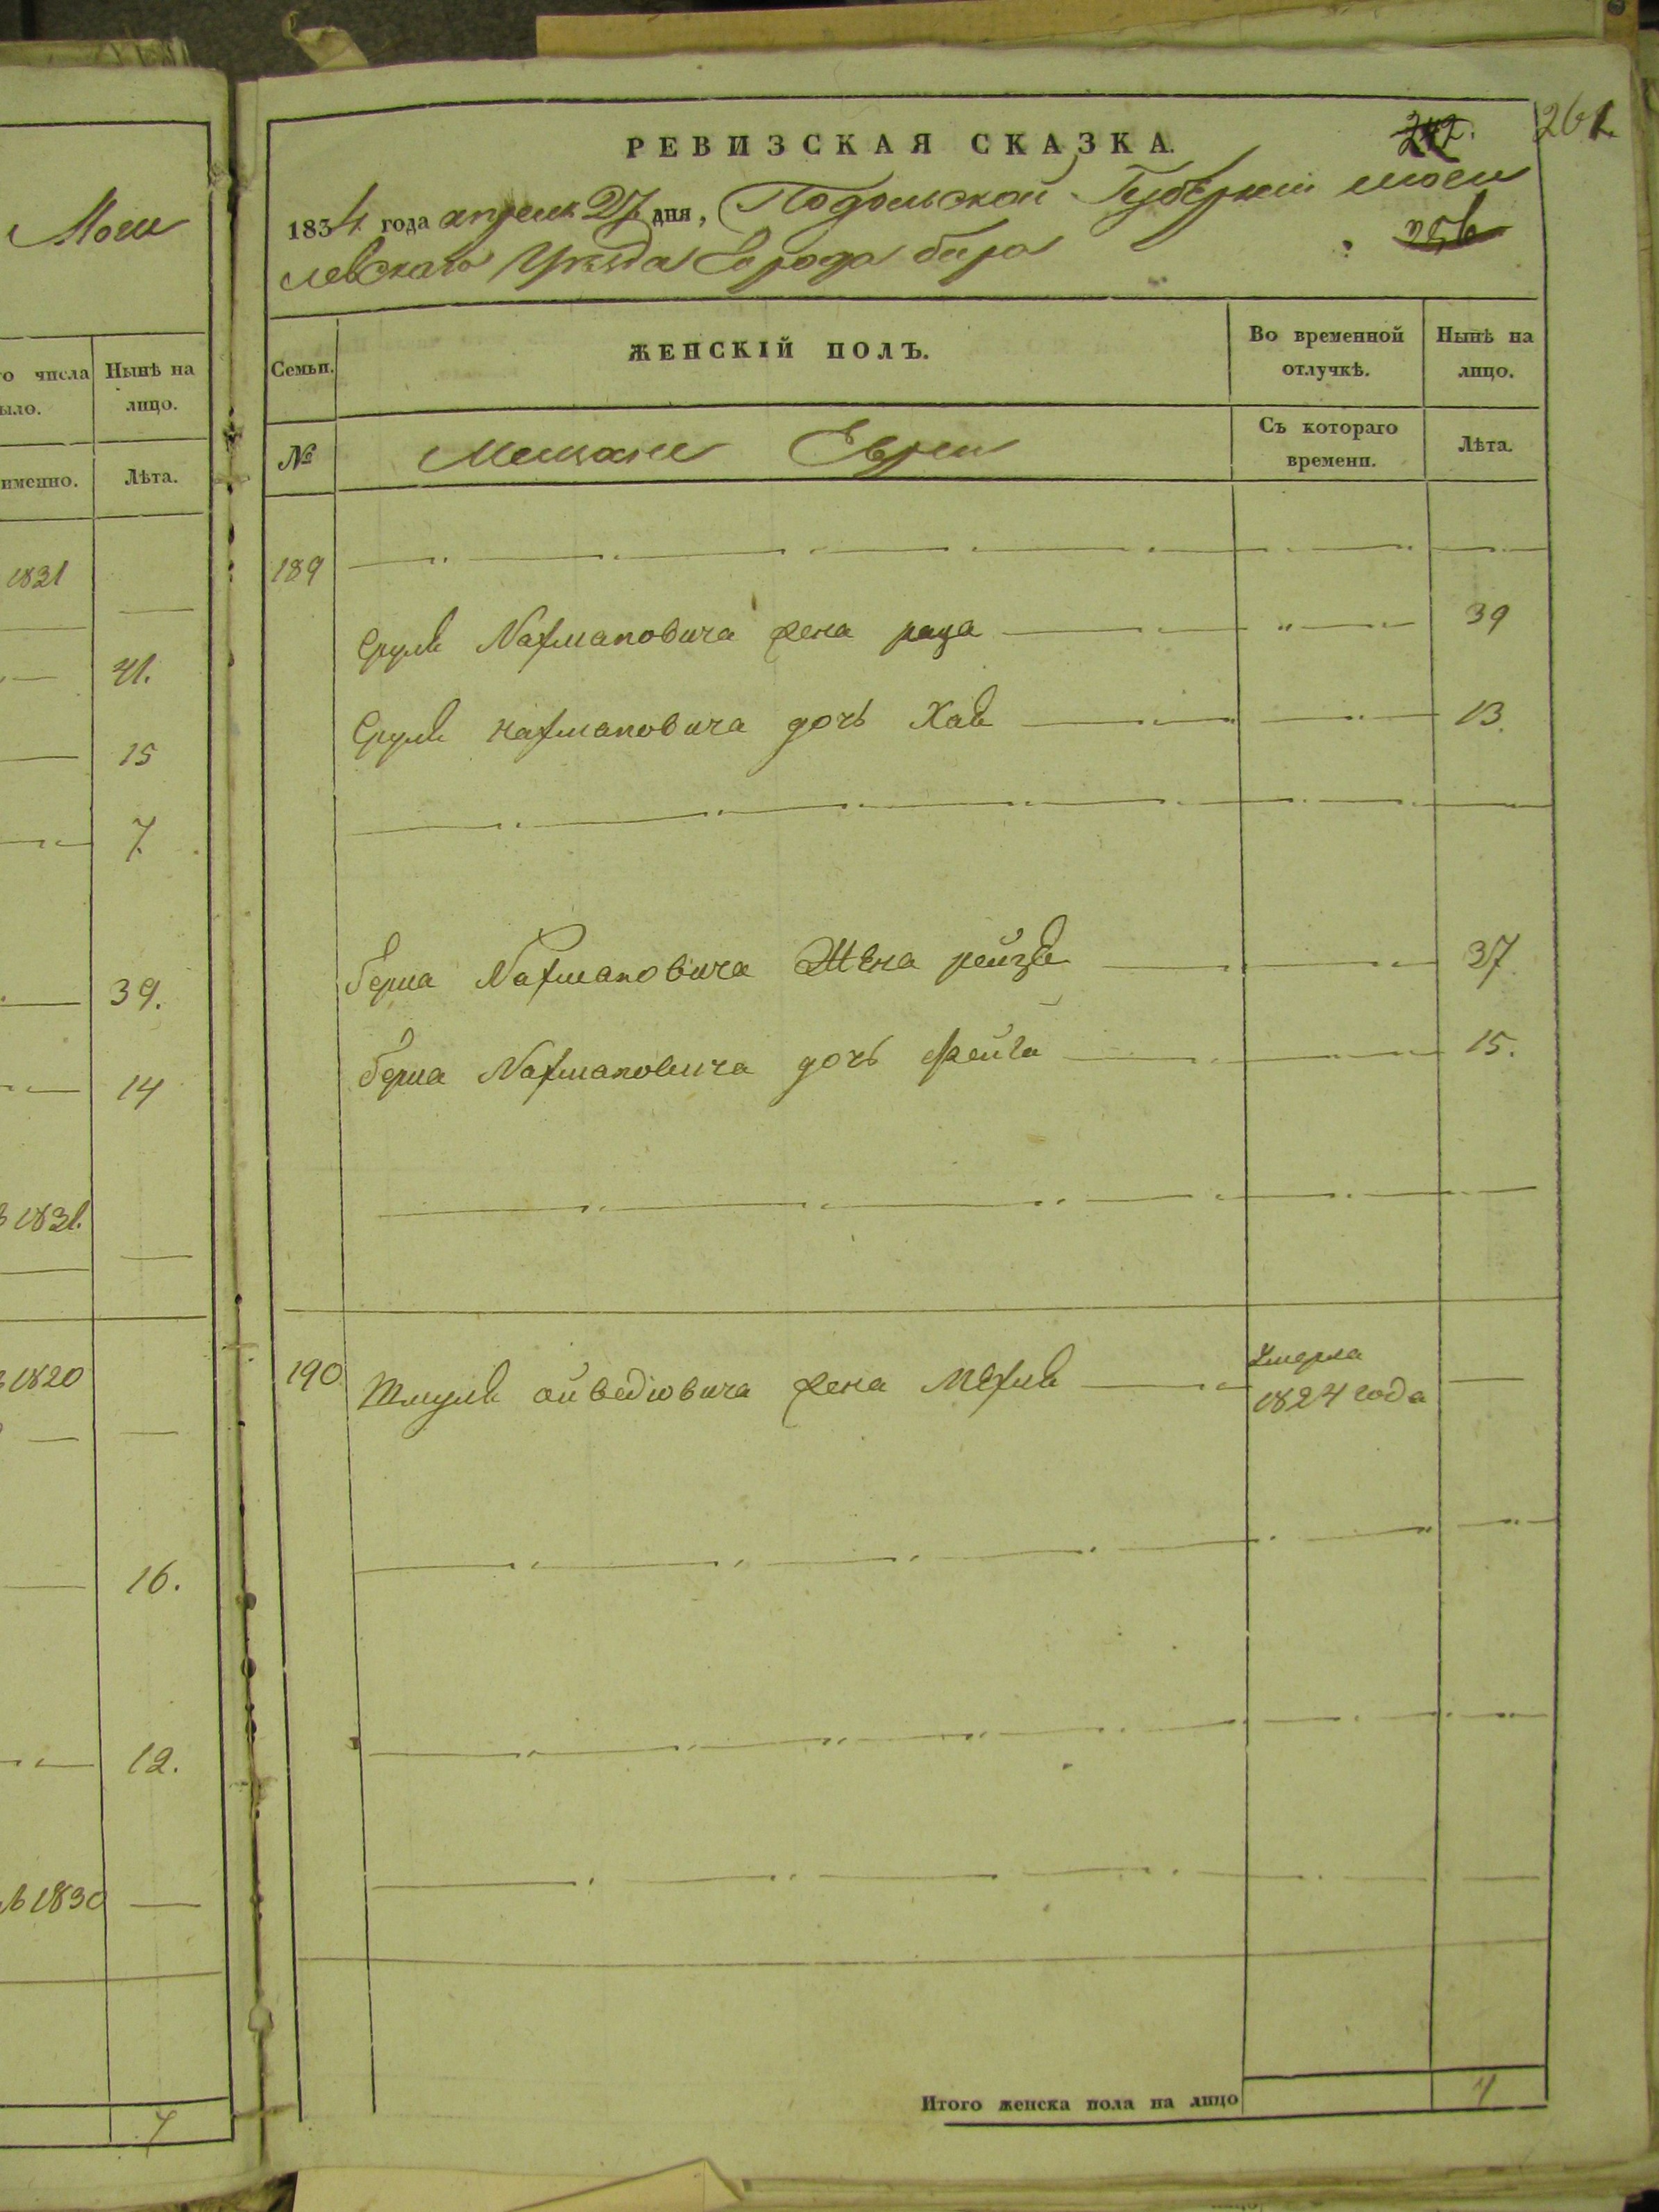 Моги
го числа
было.
Нынѣ на
лицо.
именно.
Лѣта.
1831
41.
15
7.
39.
14
1831.
1820
16.
12.
1830
7
РЕВИЗСКАЯ СКАЗКА.
242.
261.
1834 года апреля 27 дня, Подольской Губернии моги
левскаго Уезда Города бара
256
Семьи.
ЖЕНСКІЙ ПОЛЪ.
Во временной
отлучкѣ.
Нынѣ на
лицо.
№
Мещане Евреи
Съ котораго
времени.
Лѣта.
189
Сруля Nахмановича жена раца 39
Сруля нахмановича дочь Хая 13.
берка Nахмановича Жена рейзя 37
берка Nахмановича дочь Фейга 15.
190
Шмуля жена Умерла
1824 года
Итого женска пола на лицо
4